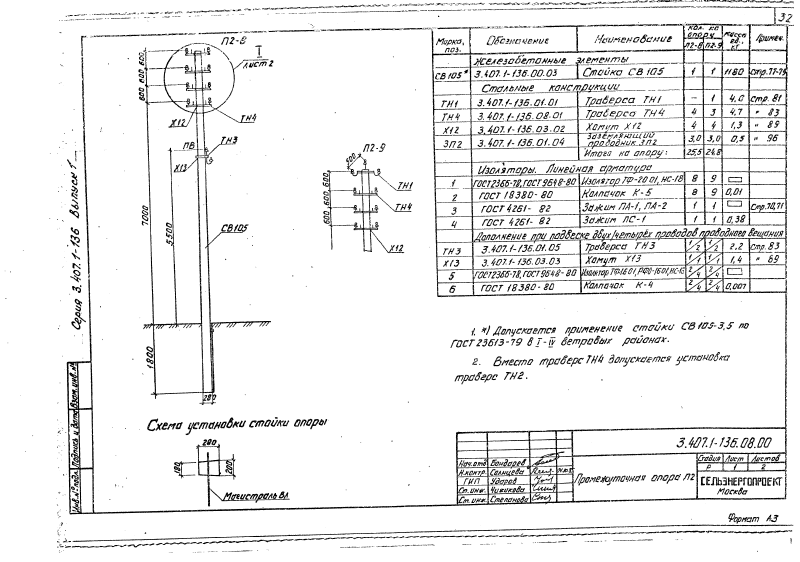 32
Серия 3.407.1-136 Выпуск 1
П2-8
I
Лист 2
600
600
600
Х12
ТН4
ПВ
ТН3
Х13
7000
СВ105
1800
280
П2-9
500
600
600
600
ТН1
ТН4
Х12
Схема установки стойки опоры
280
180
200
Магистраль ВЛ
Марка, поз. Обозначение Наименование Кол. на опору П2-8 П2-9 Масса ед., кг Примеч.
Железобетонные элементы
СВ105* 3.407.1-136.00.03 Стойка СВ105 1 1 1180
Стальные конструкции
ТН1 3.407.1-136.01.01 Траверса ТН1 – 1 4,0 Стр. 81
ТН4 3.407.1-136.08.01 Траверса ТН4 4 3 4,7 " 83
Х12 3.407.1-136.03.02 Хомут Х12 4 4 1,3 " 89
ЗП2 3.407.1-136.01.04 Заземляющий проводник ЗП2 3,0 3,0 0,5 " 96
Итого на опору: 25,5 24,8
Изоляторы. Линейная арматура
1 ГОСТ 2366-78, ГОСТ 9648-80 Изолятор ТФ-20 01, НС-18 8 9
2 ГОСТ 18380-80 Колпачок К-5 8 9 0,01
3 ГОСТ 4261-82 Зажим ПА-1, ПА-2 1 1 Стр.70,71
4 ГОСТ 4261-82 Зажим ПС-1 1 1 0,38
Дополнение при подвеске двух/четырёх проводов проводного вещания
ТН3 3.407.1-136.01.05 Траверса ТН3 1/2 1/2 2,2 Стр. 83
Х13 3.407.1-136.03.03 Хомут Х13 1/1 1/1 1,4 " 89
5 ГОСТ 2366-78, ГОСТ 9648-80 Изолятор 2/4 2/4
6 ГОСТ 18380-80 Колпачок К-4 2/4 2/4 0,007
1. *) Допускается применение стойки СВ105-3,5 по
ГОСТ 23613-79 в I-IV ветровых районах.
2. Вместо траверс ТН4 допускается установка
траверс ТН2.
3.407.1-136.08.00
Нач.отд Бондарев
Н.контр. Солнцева
ГИП Ударов
Ст.инж. Чижикова
Ст.инж. Степанова
Промежуточная опора П2
Стадия Лист Листов
Р 1 2
СЕЛЬЭНЕРГОПРОЕКТ
Москва
Инв.№ подл. Подпись и дата Взам.инв.№
Формат А3